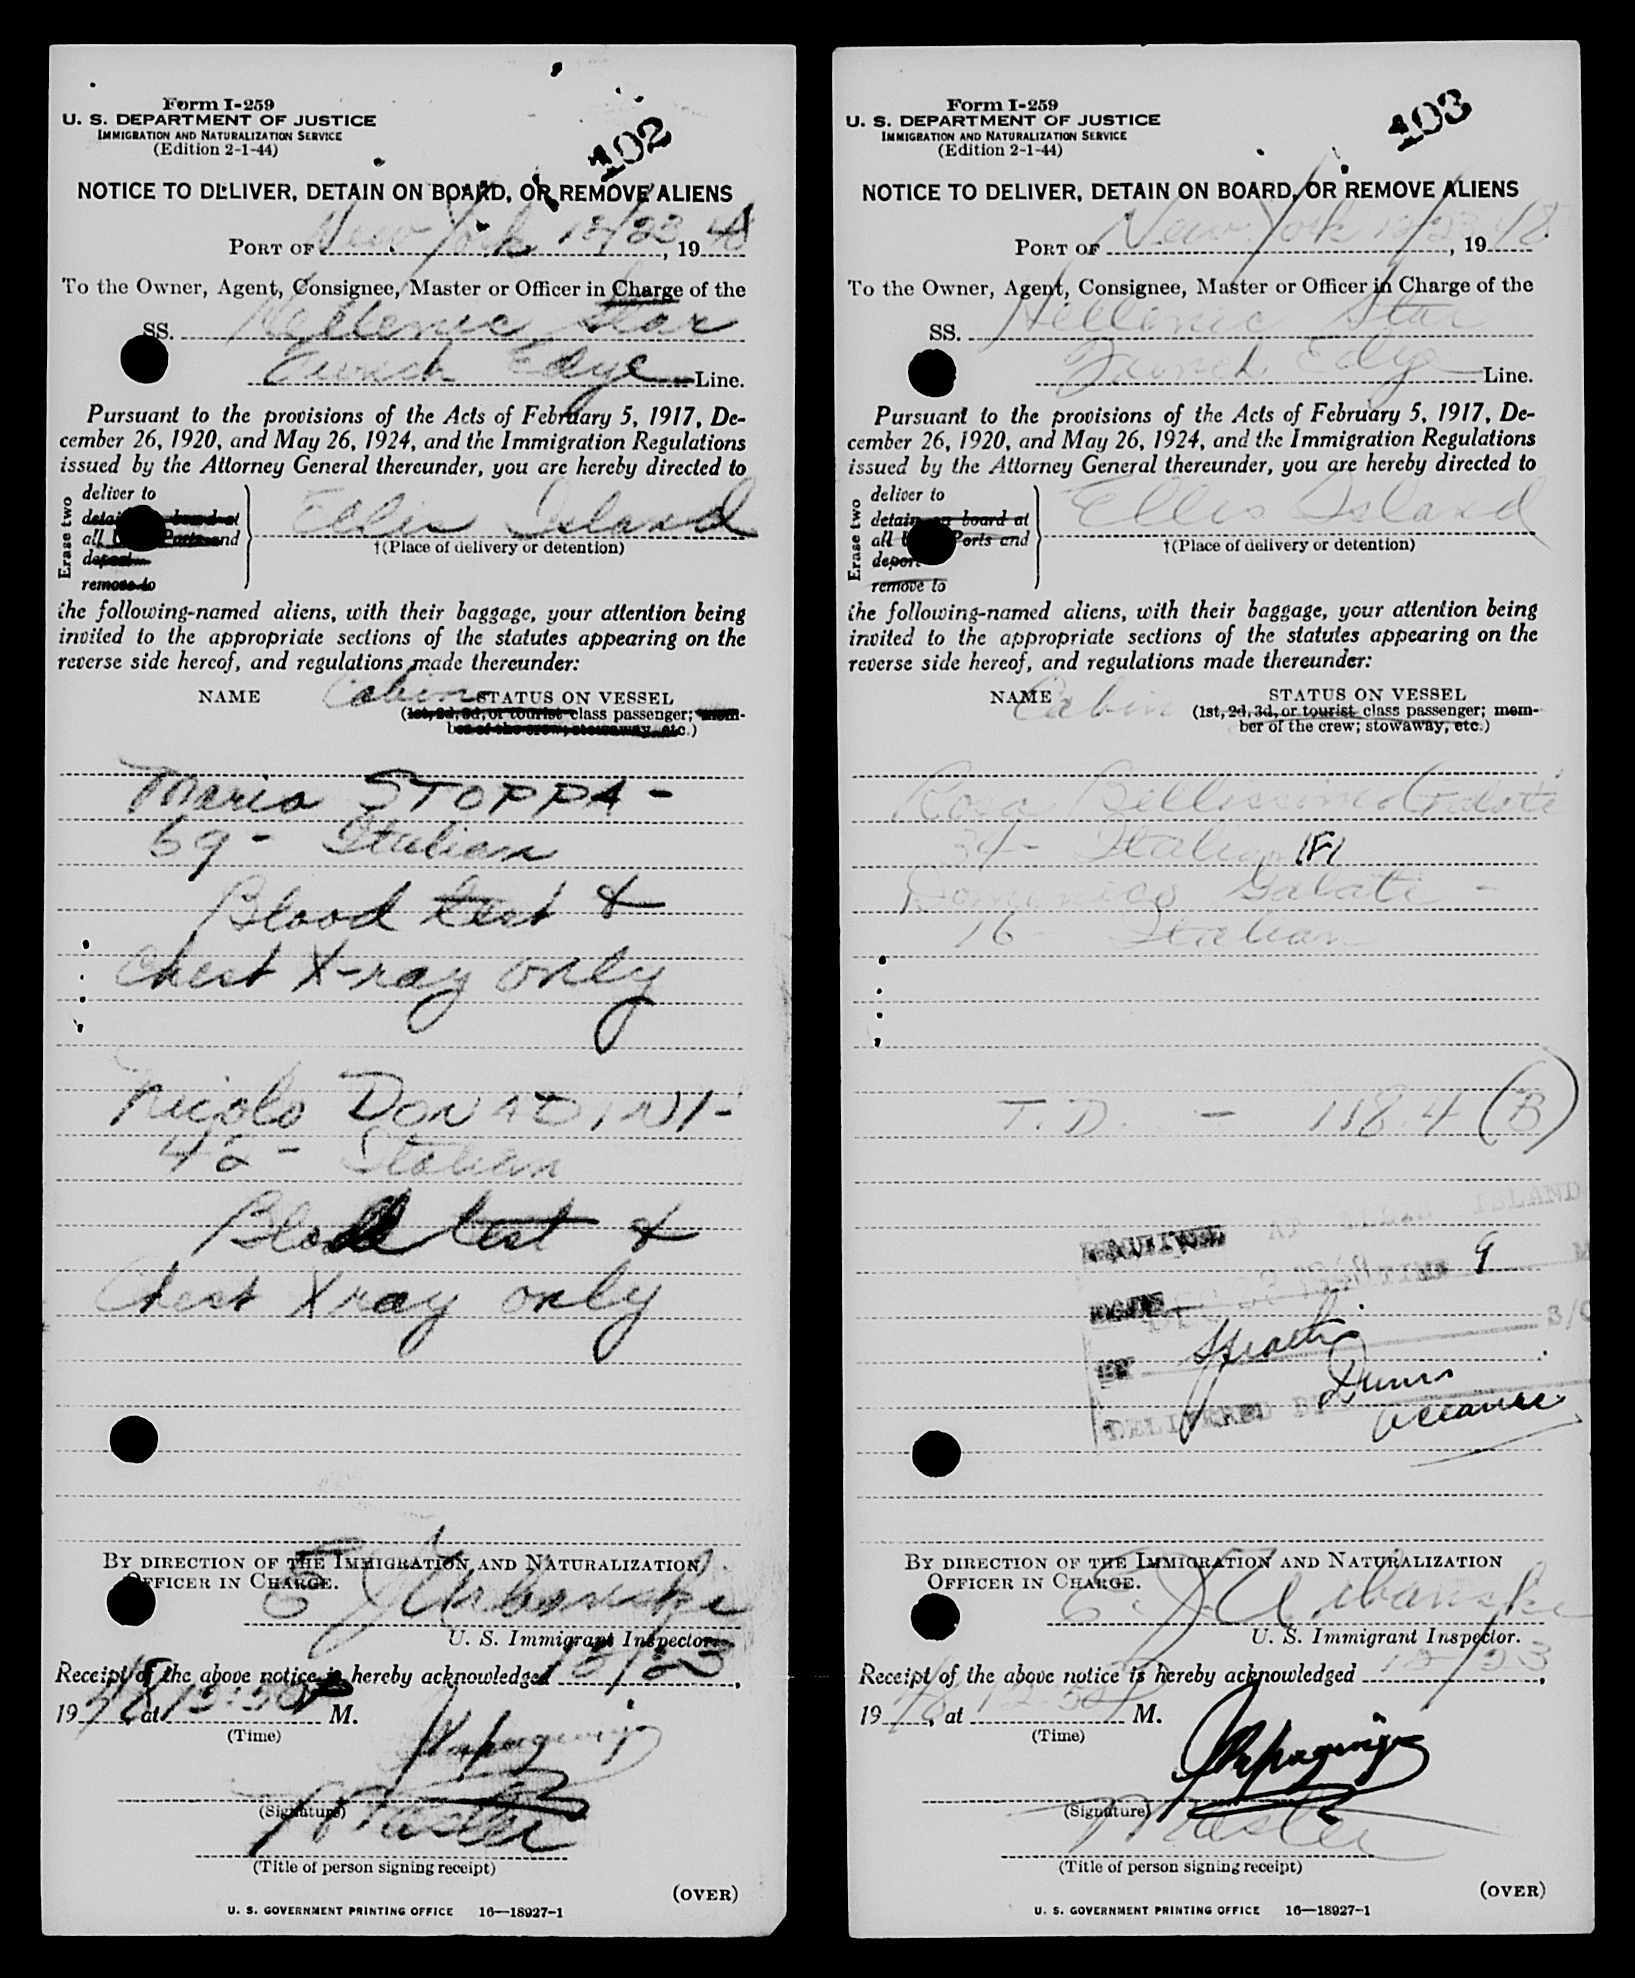 Form I-259
U. S. DEPARTMENT OF JUSTICE
IMMIGRATION AND NATURALIZATION SERVICE
(Edition 2-1-44)
102
NOTICE TO DELIVER, DETAIN ON BOARD, OR REMOVE ALIENS
PORT OF New York 12/23, 1948
To the Owner, Agent, Consignee, Master or Officer in Charge of the
SS. Hellenic Star
Edye Line.
Pursuant to the provisions of the Acts of February 5, 1917, De-
cember 26, 1920, and May 26, 1924, and the Immigration Regulations
issued by the Attorney General thereunder, you are hereby directed to
Erase two
deliver to
detain on board at
all Ports and
deport
remove to
Ellis Island
†(Place of delivery or detention)
the following-named aliens, with their baggage, your attention being
invited to the appropriate sections of the statutes appearing on the
reverse side hereof, and regulations made thereunder:
NAME Cabin STATUS ON VESSEL
(1st, 2d, 3d, or tourist class passenger; mem-
ber of the crew; stowaway, etc.)
Maria STOPPA -
69 - Italian
Blood test &
Chest X-ray only
Nicolo DONADINI -
42 - Italian
Blood test &
Chest Xray only
BY DIRECTION OF THE IMMIGRATION AND NATURALIZATION
OFFICER IN CHARGE.
E J Urbanski
U. S. Immigrant Inspector.
Receipt of the above notice is hereby acknowledged 12/23,
1948, at 12:50 P M.
(Time)
(Signature)
Master
(Title of person signing receipt)
(OVER)
U. S. GOVERNMENT PRINTING OFFICE 16—18927-1
Form I-259
U. S. DEPARTMENT OF JUSTICE
IMMIGRATION AND NATURALIZATION SERVICE
(Edition 2-1-44)
103
NOTICE TO DELIVER, DETAIN ON BOARD, OR REMOVE ALIENS
PORT OF New York 12/23, 1948
To the Owner, Agent, Consignee, Master or Officer in Charge of the
SS. Hellenic Star
Edye Line.
Pursuant to the provisions of the Acts of February 5, 1917, De-
cember 26, 1920, and May 26, 1924, and the Immigration Regulations
issued by the Attorney General thereunder, you are hereby directed to
Erase two
deliver to
detain on board at
all Ports and
deport
remove to
Ellis Island
†(Place of delivery or detention)
the following-named aliens, with their baggage, your attention being
invited to the appropriate sections of the statutes appearing on the
reverse side hereof, and regulations made thereunder:
NAME Cabin STATUS ON VESSEL
(1st, 2d, 3d, or tourist class passenger; mem-
ber of the crew; stowaway, etc.)
Rosa Bellissimo Galati
34 - Italian
Domenico Galati -
16 - Italian
T. D. - 118.4 (B)
RECEIVED AT ELLIS ISLAND
9
BY
DELIVERED BY
BY DIRECTION OF THE IMMIGRATION AND NATURALIZATION
OFFICER IN CHARGE.
E. J. Urbanski
U. S. Immigrant Inspector.
Receipt of the above notice is hereby acknowledged 12/23,
1948, at 12:50 P M.
(Time)
(Signature)
Master
(Title of person signing receipt)
(OVER)
U. S. GOVERNMENT PRINTING OFFICE 16—18927-1